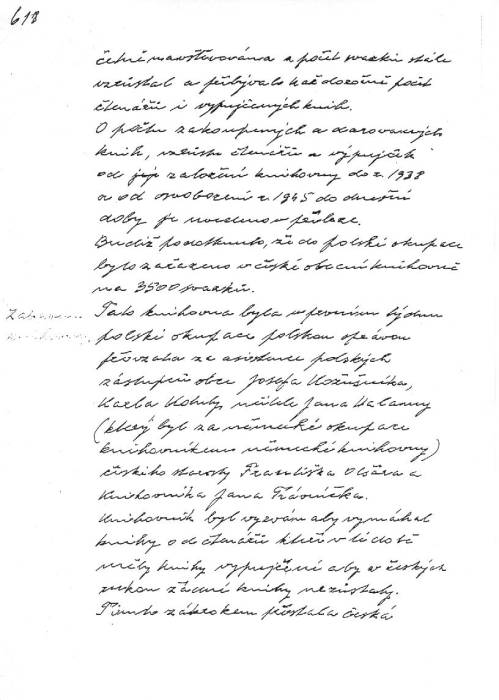 618
četně navštěvována a počet svazků stále
vzrůstal a přibývalo každoročně počet
čtenářů i vypůjčených knih.
O počtu zakoupených a darovaných
knih, vzrůstu čtenářů a výpůjček
od jejího založení knihovny do r. 1938
a od osvobození r. 1945 do dnešní
doby je uvedeno v příloze.
Budiž podotknuto, že do polské okupace
bylo zařazeno v české obecní knihovně
na 3500 svazků.
Tato knihovna byla v prvním týdnu
polské okupace polskou správou
převzata za asistence polských
zástupců obce Josefa Kožušníka,
Karla Koluty, učitele Jana Kalamy
(který byl za německé okupace
knihovníkem německé knihovny)
českého starosty Františka Olšára a
knihovníka Jana Trávníčka.
Knihovník byl vyzván aby vymáhal
knihy od čtenářů kteří v té době
měly knihy vypůjčeni aby v českých
rukou žádné knihy nezůstaly.
Tímto zákrokem přestala česká